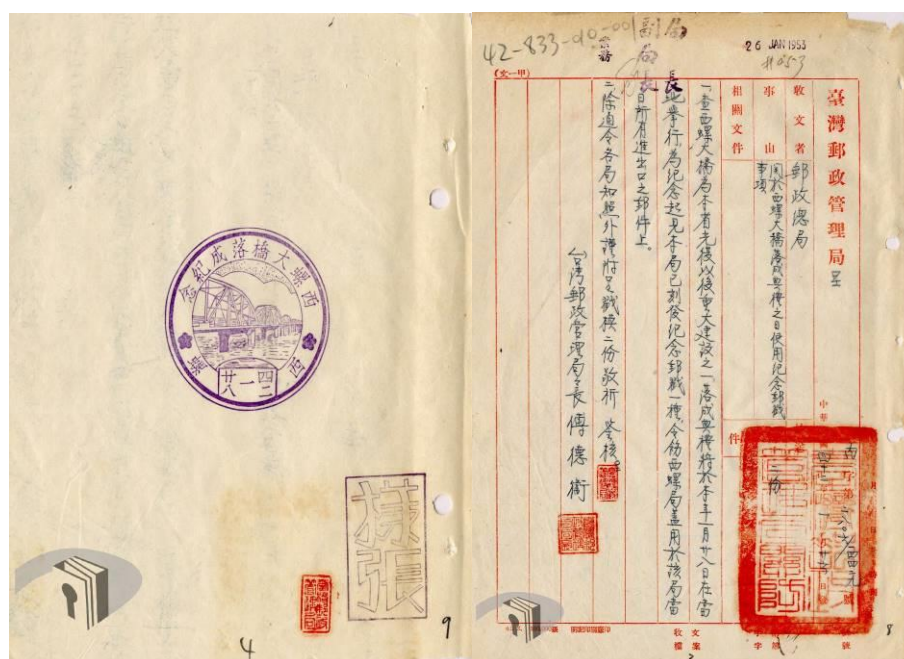 42-833-90-001
副局長
26 JAN 1953
(文一甲)
臺灣郵政管理局 呈
收文者 郵政總局
事由 關於西螺大橋落成典禮之日使用紀念郵戳
事項
相關文件
件 二份
一查西螺大橋為本省光復以後重大建設之一落成典禮將於本年一月廿八日在當
地舉行為紀念起見本局已刻發紀念郵戳一種令飭西螺局蓋用於該局當
日所有進出口之郵件上。
二除通令各局知照外謹附呈戳模二份敬祈 鑒核。
台灣郵政管理局局長傅德衛
8
西螺大橋落成紀念
西螺
四二
一
廿八
樣張
4
9